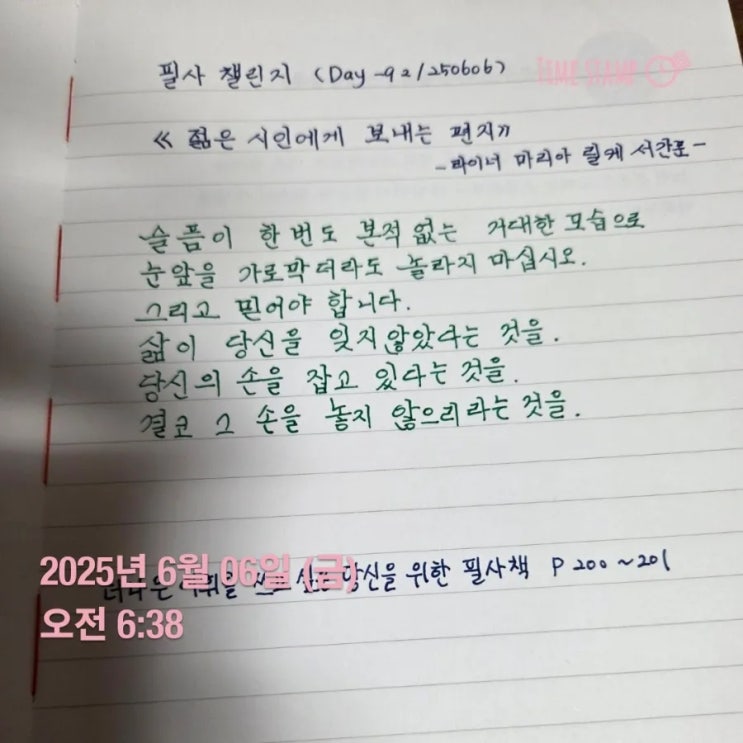 필사 챌린지 (Day-92/250606)
TIME STAMP
≪ 젊은 시인에게 보내는 편지≫
- 라이너 마리아 릴케 서간문 -
슬픔이 한번도 본적 없는 거대한 모습으로
눈앞을 가로막더라도 놀라지 마십시오.
그리고 믿어야 합니다.
삶이 당신을 잊지않았다는 것을.
당신의 손을 잡고 있다는 것을.
결코 그 손을 놓지 않으리라는 것을.
2025년 6월 06일 (금)
당신을 위한 필사책 P 200~201
오전 6:38